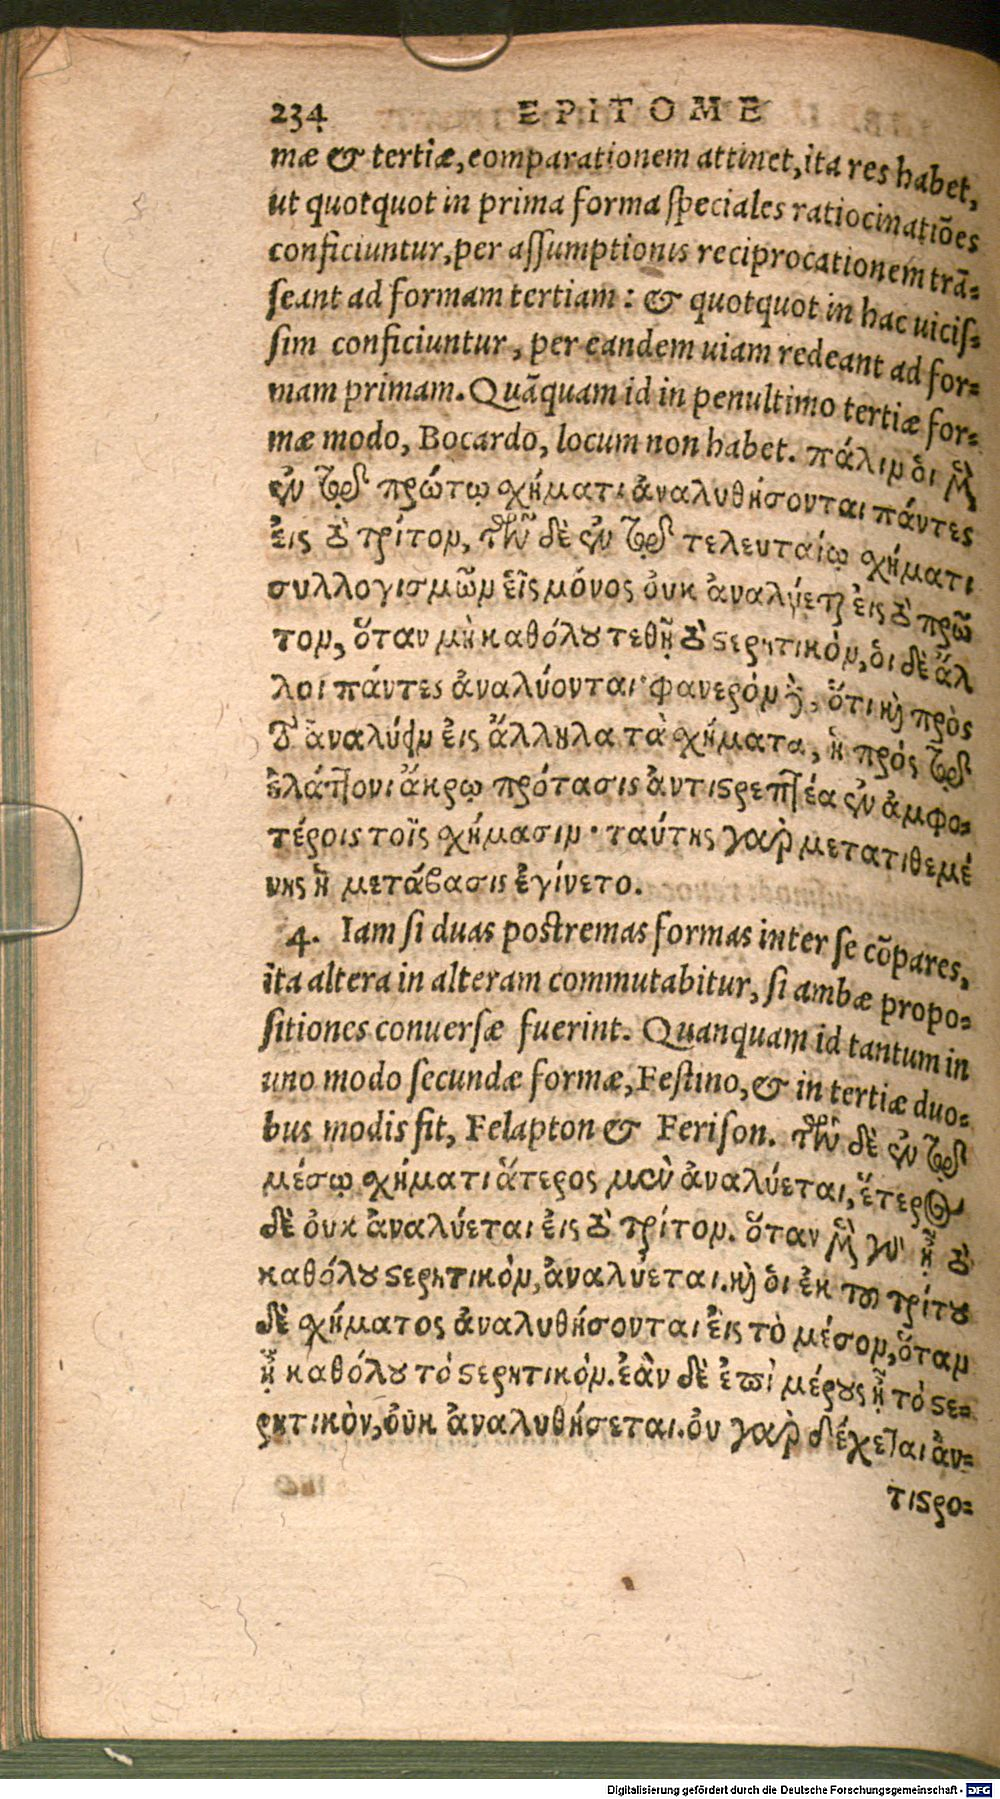 234 EPITOME
mæ & tertiæ, comparationem attinet, ita res habet,
ut quotquot in prima forma speciales ratiocinatiões
conficiuntur, per assumptionis reciprocationem trã-
seant ad formam tertiam: & quotquot in hac uicis-
sim conficiuntur, per eandem uiam redeant ad for-
mam primam. Quãquam id in penultimo tertiæ for-
mæ modo, Bocardo, locum non habet. πάλιν δι ἢ
ἐν τῷ πρώτῳ σχήματι ἀναλυθήσονται πάντες
εἰς τὸ τρίτον, τῶν δὲ ἐν τῷ τελευταίῳ σχήματι
συλλογισμῶν εἷς μόνος οὐκ ἀναλύεται εἰς τὸ πρῶ
τον, ὅταν μὴ καθόλου τεθῇ τὸ στερητικὸν, ὁι δὲ ἄλ
λοι πάντες ἀναλύονται· φανερὸν , ὅτι καὶ πρὸς
τὸ ἀναλύειν εἰς ἄλληλα τὰ σχήματα, ἡ πρός τῷ
ἐλάττονι ἄκρῳ πρότασις ἀντιστρεπτέα ἐν ἀμφο-
τέροις τοῖς σχήμασιν· ταύτης γὰρ μετατιθεμέ
νης ἡ μετάβασις ἐγίνετο.
4. Iam si duas postremas formas inter se cõpares,
ita altera in alteram commutabitur, si ambæ propo-
sitiones conuersæ fuerint. Quanquam id tantum in
uno modo secundæ formæ, Festino, & in tertiæ duo-
bus modis fit, Felapton & Ferison. τῶν δὲ ἐν τῷ
μέσῳ σχήματι ἅτερος μὲν ἀναλύεται, ἕτερος
δὲ οὐκ ἀναλύεται εἰς τὸ τρίτον. ὅταν μὲν γὰρ ᾖ τὸ
καθόλου στερητικὸν, ἀναλύεται. καὶ ὁι ἐκ τοῦ τρίτου
δὲ σχήματος ἀναλυθήσονται εἰς τὸ μέσον, ὅταν
ᾖ καθόλου τὸ στερητικόν. ἐὰν δὲ ἐπὶ μέρους ᾖ τὸ στε-
ρητικὸν, οὐκ ἀναλυθήσεται. οὐ γὰρ δέχεται ἀν-
τιστρο-
Digitalisierung gefördert durch die Deutsche Forschungsgemeinschaft - DFG